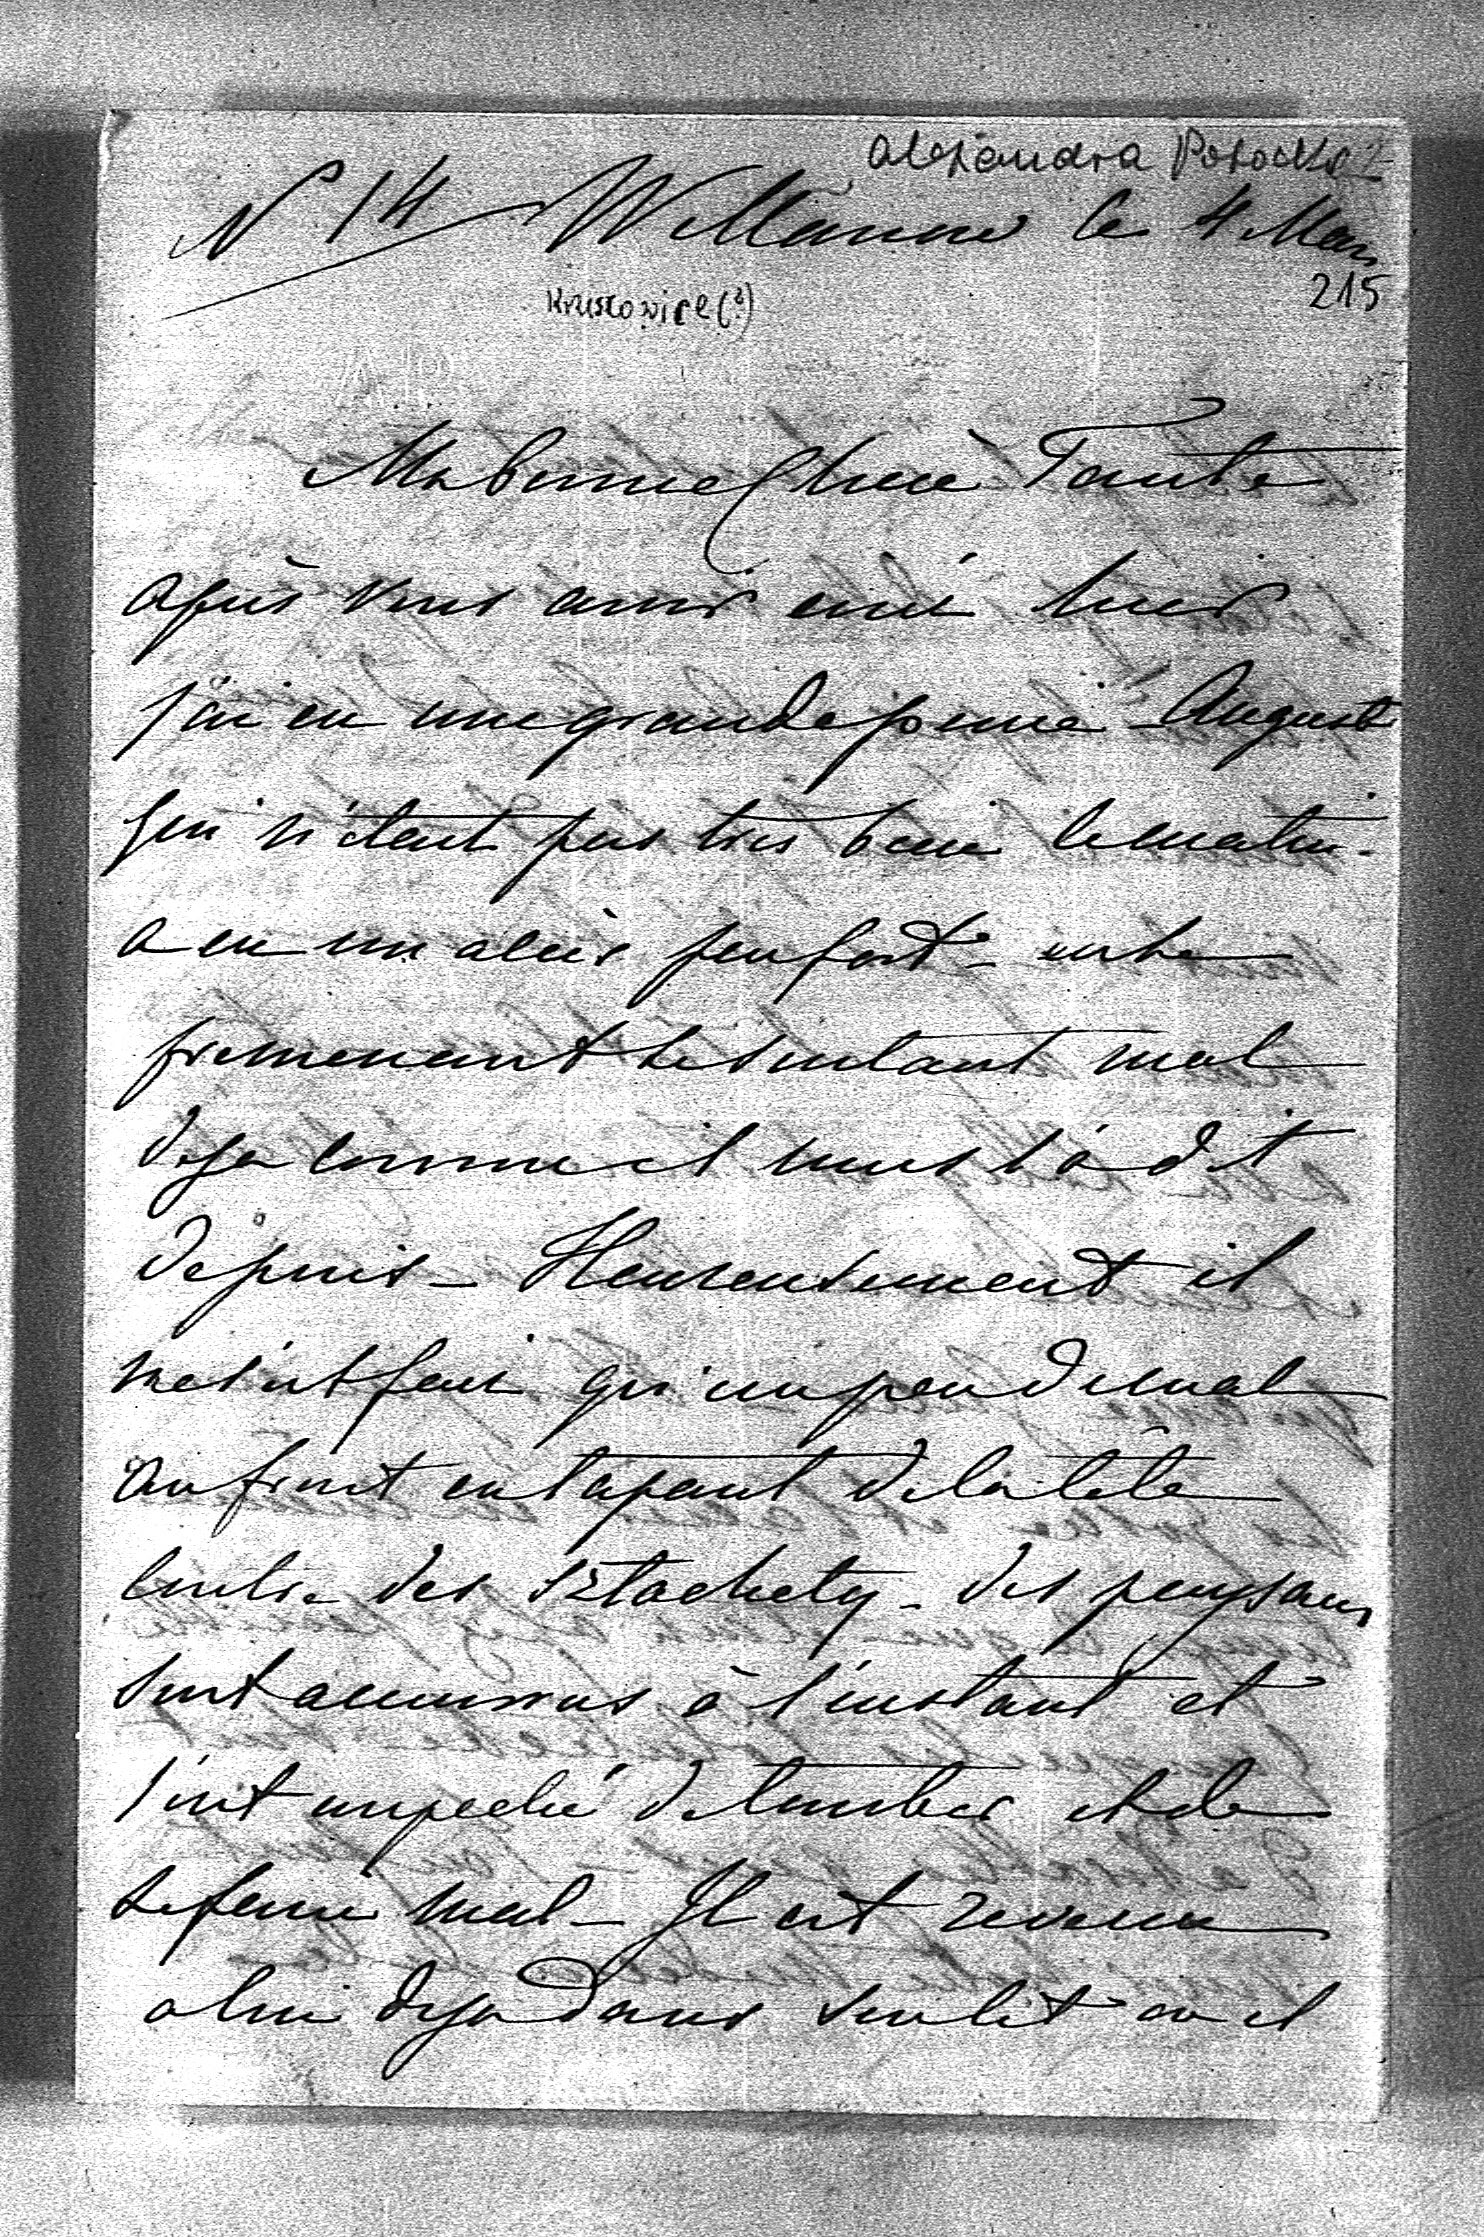 Alexandra Potocka 2
N 14 Willanow le 4 Mars
215
Kruszowice (?)
Ma bonne Chère Tante
après vous avoir écrit hier
j'ai eu une grande peine - Auguste
qui n'étant pas très bien le matin -
a eu un accès peu fort - en se
promenant se sentant mal
deja comme il nous l'a dit
depuis - Heureusement il
ne s'est fait qu'un peu de mal
au front en tapant de la tête
contre des sztachety - des paysans
sont accourus à l'instant et
l'ont empeché de tomber et de
se faire mal - Il est revenu
a lui deja dans son lit ou il